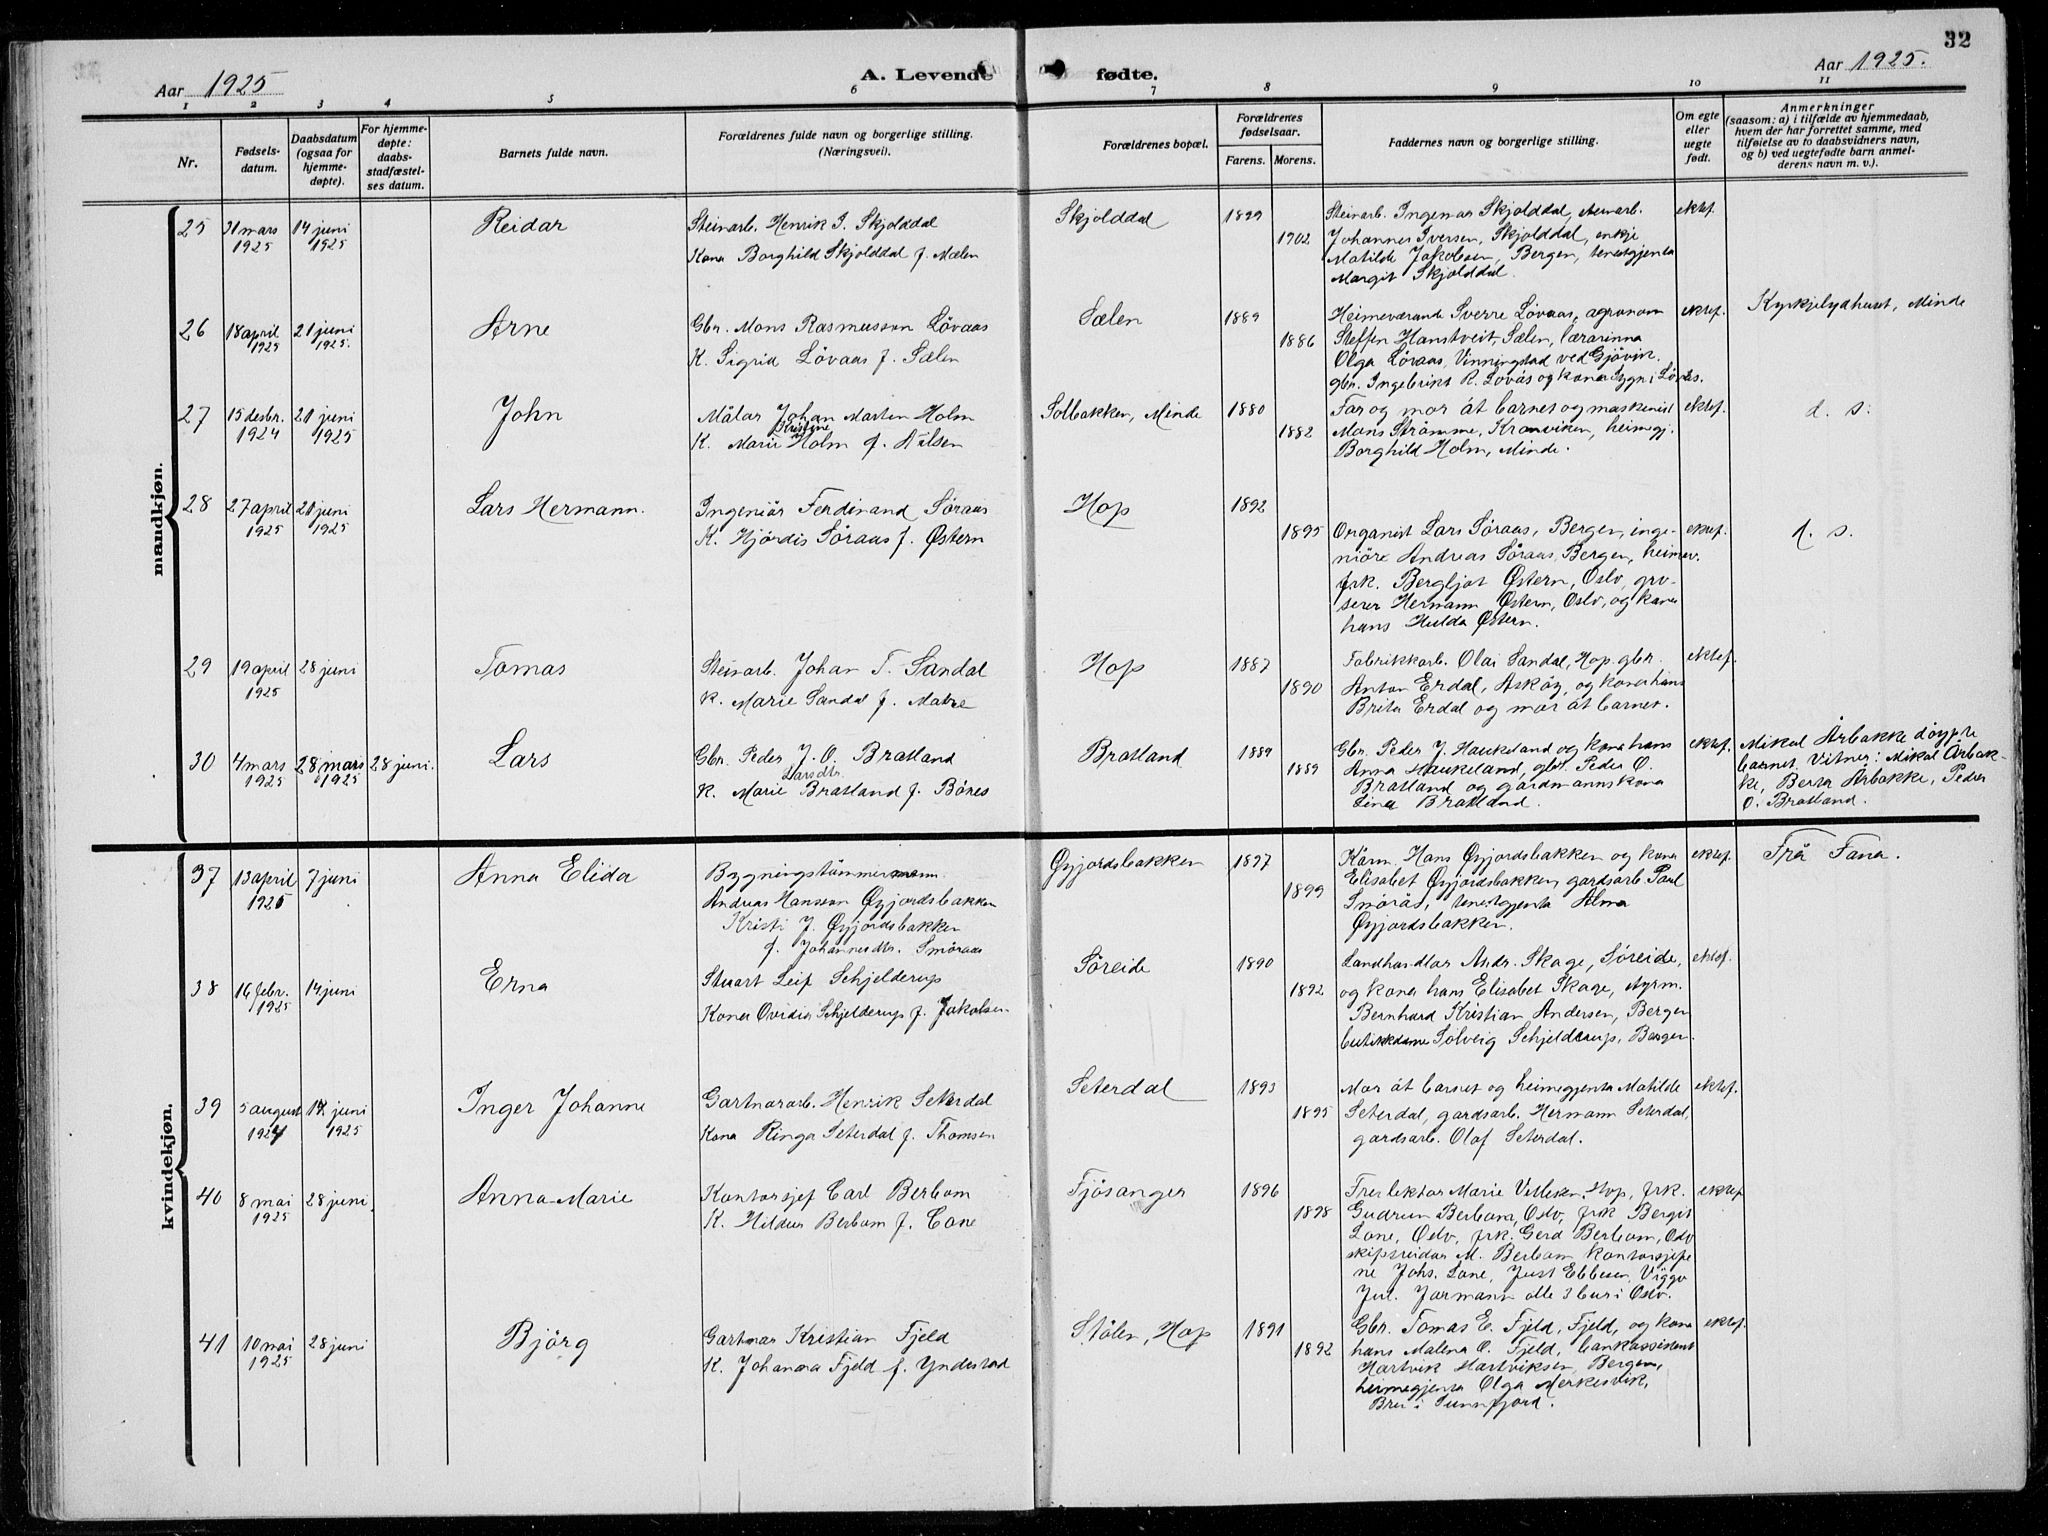 32
Aar 1925
A. Levende fødte.
Aar 1925.
1 2 3 4 5 6 7 8 9 10 11
Nr.
Fødsels-
datum.
Daabsdatum
(ogsaa for
hjemme-
døpte).
For hjemme-
døpte:
daabs-
stadfæstel-
ses datum.
Barnets fulde navn.
Forældrenes fulde navn og borgerlige stilling.
(Næringsvei).
Forældrenes bopæl.
Forældrenes
fødselsaar.
Farens. Morens.
Faddernes navn og borgerlige stilling.
Om egte
eller
uegte
født.
Anmerkninger
(saasom: a) i tilfælde av hjemmedaab,
hvem der har forrettet samme, med
tilføielse av to daabsvidners navn,
og b) ved uegtefødte barn anmel-
derens navn m. v.).
mandkjøn.
25
31 mars
1925
14 juni
1925
Reidar
Steinarb. Henrik I. Skjolddal
Kona Borghild Skjolddal f. Mælen
Skjolddal
1899
1902
Steinarb. Ingemar Skjolddal, steinarb.
Johannes Iversen, Skjolddal, enkje
Matilde Jakobsen, Bergen, tenestgjenta
Margit Skjolddal.
ektef.
26
18 april
1925
21 juni
1925.
Arne
Gbr. Mons Rasmusson Lövaas
K. Sigrid Lövaas f. Sælen
Sælen
1889
1886
Heimeværande Sverre Lövaas, agronom
Steffen Hamstveit, Sælen, lærarinna
Olga Lövaas, Vinningstad ved Gjövik.
gbr. Ingebrikt R. Lovås og kona Sygni Lövås.
ektef.
Kyrkjelydhuset, Minde
27
15 desbr.
1924
21 juni
1925
John
Målar Johan Marten Holm
Kristine
K. Marie Holm f. Nilsen
Solbakken, Minde
1880
1882
Far og mor åt barnet og maskinist
Mons Strömme, Kronviken, heimegj.
Borghild Holm, Minde.
ektef.
d. s.
28
27 april
1925
21 juni
1925
Lars Hermann.
Ingeniör Ferdinand Söraas
K. Hjördis Söraas f. Østern
Hop
1892
1895
Organist Lars Söraas, Bergen, inge-
niöre Andreas Söraas, Bergen, heimev.
frk. Bergljot Østern, Oslo, gro-
serer Hermann Østern, Oslo, og kona
hans Hulda Østern.
ektef.
d. s.
29
19 april
1925
28 juni
Tomas
Steinarb. Johan T. Sandal
K. Marie Sandal f. Matre
Hop
1887
1890
Fabrikkarb. Olai Sandal, Hop. gbr.
Anton Erdal, Asköy, og kona hans
Brita Erdal og mor åt barnet.
ektef.
30
4 mars
1925
28 mars
1925
28 juni.
Lars
Gbr. Peder J. O. Bratland
Larsdtr.
K. Marie Bratland f. Bönes
Bratland
1889
1889
Gbr. Peder J. Haukeland og kona hans
Anna Haukeland, gbr. Peder O.
Bratland og gardmannskona
Lina Bratland.
ektef.
Mikal Årbakke döypte
barnet. Vitner: Mikal Årbak-
ke, Berta Årbakke, Peder
O. Bratland.
kvindekjøn.
37
13 april
1925
7 juni
Anna Elida
Bygningstömmermann
Andreas Hansson Øyjordsbakken
Kristi J. Øyjordsbakken
f. Johannesdtr. Smöraas
Øyjordsbakken
1897
1899
Kårm. Hans Øyjordsbakken og kona
Elisabet Øyjordsbakken, gardsarb. Paul
Smörås, tenestgjenta Alma
Øyjordsbakken.
ektef.
Frå Fana.
38
16 febr.
1925
14 juni
Erna
Stuart Leif Schjelderup
Kona Ovidia Schjelderup f. Jakobsen
Söreide
1890
1892
Landhandlar Andr. Skage, Söreide,
og kona hans Elisabet Skage, styrm.
Bernhard Kristian Andersen, Bergen
butikkdame Solveig Schjelderup, Bergen.
ektef.
39
5 august
1924
14 juni
1925
Inger Johanne
Gartnararb. Henrik Seterdal
Kona Ringa Seterdal f. Thomsen
Seterdal
1893
1895
Mor åt barnet og heimegjenta Matilde
Seterdal, gardsarb. Hermann Seterdal
gardsarb. Olaf Seterdal.
ektef.
40
8 mai
1925
28 juni.
Anna-Marie
Kontorsjef Carl Berbom
K. Hildur Berbom f. Lone
Fjösanger
1896
1898
Marie Hop, frk.
Gudrun Berbom, Oslo, frk Bergit
Lone, Oslo, frk. Gerd Berbom, Oslo
skipsreidar M. Berbom, kontorsjefe
ne Johs. Lone, Just Ebbesen, Viggo
Jul. Jarmann alle 3 bur i Oslo.
ektef.
41
10 mai
1925
28 juni
Björg
Gartnar Kristian Fjeld
K. Johanna Fjeld f. Yndestad
Stölen, Hop
1891
1892
Gbr. Tomas E. Fjeld, Fjeld, og kona
hans Malena O. Fjeld, bankassistent
Hartvik Hartviksen, Bergen,
heimegjenta Olga Merkesvik,
Bru i Sunnfjord.
ektef.